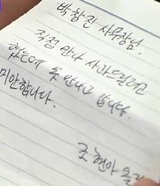 박창진 사무장님,
직접 만나 사과드리려고
했는데 못 만나고 갑니다.
미안합니다.
조현아 올림